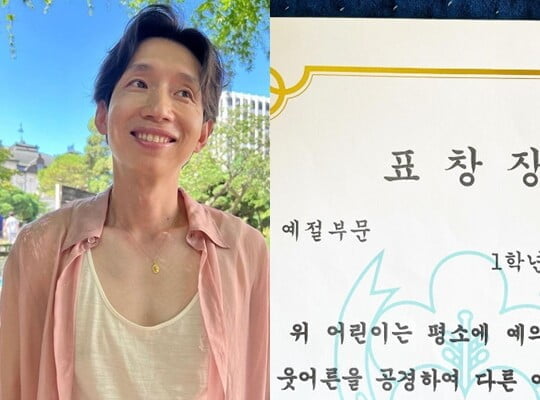 표 창 장
예절부문
1학년
위 어린이는 평소에 예의
웃어른을 공경하여 다른